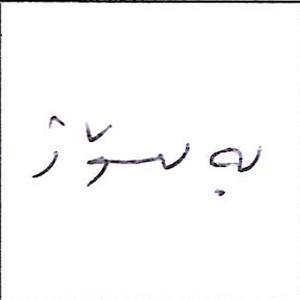 بە سۆژ